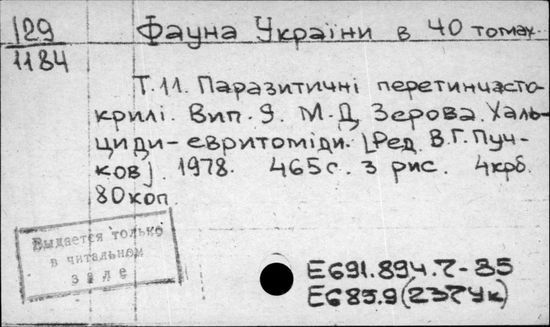 129
1184
Фауна України в 40 томах.
Т.11. Паразитичні перетинчасто-
крилі. Вип. 9. М.Д. Зерова. Халь-
циди-евритоміди. [Ред. В.Г. Пуч-
ков]. 1978. 465с. з рис. 4крб.
80коп.
Выдается только
в читальном
зале
Е691.894.7-35
Е685.9(237Ук)